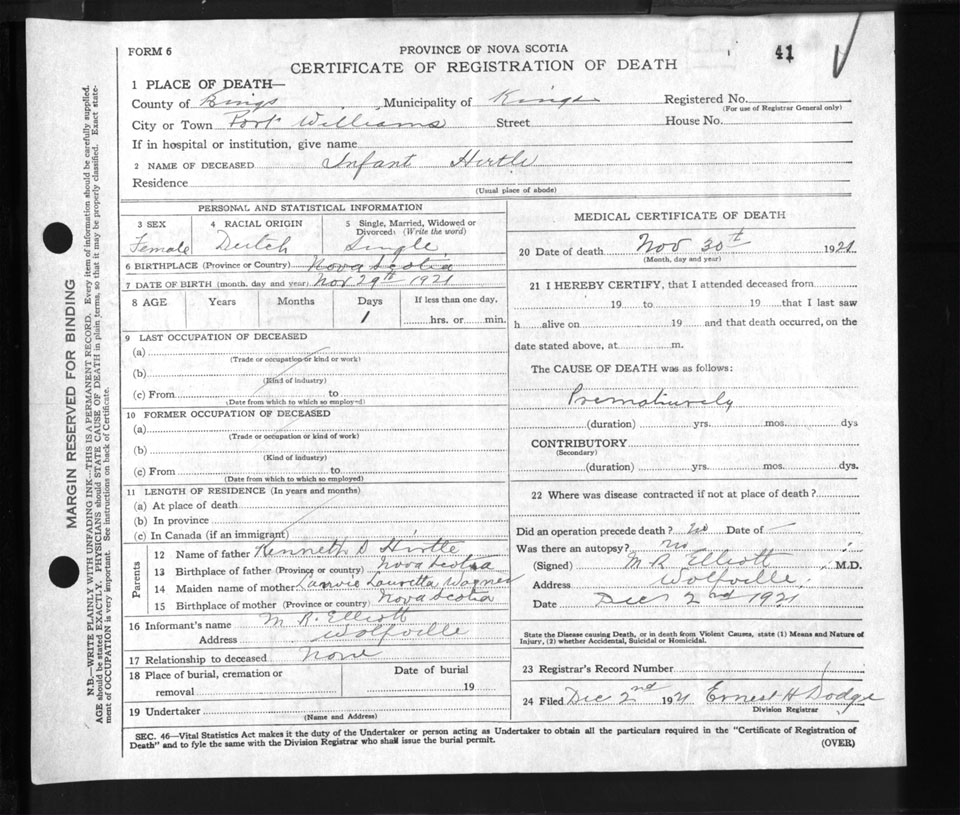 FORM 6
PROVINCE OF NOVA SCOTIA
41
CERTIFICATE OF REGISTRATION OF DEATH
1 PLACE OF DEATH—
County of Kings, Municipality of Kings Registered No.
(For use of Registrar General only)
City or Town Port Williams Street House No.
If in hospital or institution, give name
2 NAME OF DECEASED Infant Hirtle
Residence
(Usual place of abode)
PERSONAL AND STATISTICAL INFORMATION
3 SEX 4 RACIAL ORIGIN 5 Single, Married, Widowed or
Divorced: (Write the word)
Female Dutch Single
6 BIRTHPLACE (Province or Country) Nova Scotia
7 DATE OF BIRTH (month, day and year) Nov 29th 1921
8 AGE Years Months Days If less than one day,
1 hrs. or min.
9 LAST OCCUPATION OF DECEASED
(a)
(Trade or occupation or kind or work)
(b)
(Kind of industry)
(c) From to
(Date from which to which so employed)
10 FORMER OCCUPATION OF DECEASED
(a)
(Trade or occupation or kind of work)
(b)
(Kind of industry)
(c) From to
(Date from which to which so employed)
11 LENGTH OF RESIDENCE (In years and months)
(a) At place of death
(b) In province
(c) In Canada (if an immigrant)
Parents
12 Name of father Kenneth D Hirtle
13 Birthplace of father (Province or country) Nova Scotia
14 Maiden name of mother Lauretta Wagner
15 Birthplace of mother (Province or country) Nova Scotia
16 Informant's name M. R. Elliott
Address Wolfville
17 Relationship to deceased None
18 Place of burial, cremation or Date of burial
removal 19
19 Undertaker
(Name and Address)
MEDICAL CERTIFICATE OF DEATH
20 Date of death Nov 30th 1921
(Month, day and year)
21 I HEREBY CERTIFY, that I attended deceased from
19 to 19 that I last saw
h alive on 19 and that death occurred, on the
date stated above, at m.
The CAUSE OF DEATH was as follows:
Prematurely
(duration) yrs. mos. dys
CONTRIBUTORY
(Secondary)
(duration) yrs. mos. dys.
22 Where was disease contracted if not at place of death?
Did an operation precede death? no Date of —
Was there an autopsy? no
(Signed) M R Elliott, M.D.
Address Wolfville
Date Dec 2nd 1921
State the Disease causing Death, or in death from Violent Causes, state (1) Means and Nature of
Injury, (2) whether Accidental, Suicidal or Homicidal.
23 Registrar's Record Number
24 Filed Dec 2nd 1921 Ernest H Dodge
Division Registrar
SEC. 46—Vital Statistics Act makes it the duty of the Undertaker or person acting as Undertaker to obtain all the particulars required in the "Certificate of Registration of
Death" and to fyle the same with the Division Registrar who shall issue the burial permit.
(OVER)
MARGIN RESERVED FOR BINDING
N.B.—WRITE PLAINLY WITH UNFADING INK—THIS IS A PERMANENT RECORD. Every item of information should be carefully supplied.
AGE should be stated EXACTLY. PHYSICIANS should STATE CAUSE OF DEATH in plain terms, so that it may be properly classified. Exact state-
ment of OCCUPATION is very important. See instructions on back of Certificate.